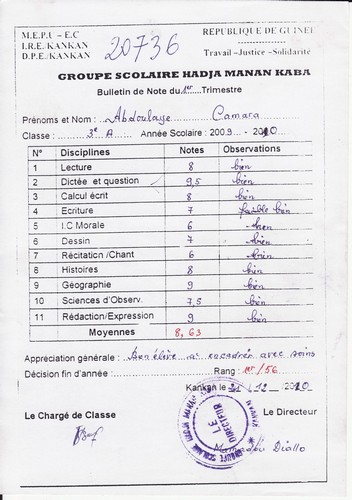 M.E.P.U – E.C
I.R.E./KANKAN
D.P.E./KANKAN
20736
REPUBLIQUE DE GUINEE
Travail –Justice –Solidarité
GROUPE SCOLAIRE HADJA MANAN KABA
Bulletin de Note du 1er Trimestre
Prénoms et Nom : Abdoulaye Camara
Classe : 3e A Année Scolaire : 2009 - 2010
N° Disciplines Notes Observations
1 Lecture 8 bien
2 Dictée et question 9,5 bien
3 Calcul écrit 8 bien
4 Ecriture 7 bien
5 I.C Morale 6 bien
6 Dessin 7 bien
7 Récitation /Chant 6 bien
8 Histoires 8 bien
9 Géographie 9 bien
10 Sciences d'Observ. 7,5 bien
11 Rédaction/Expression 9 bien
Moyennes 8,63
Appréciation générale : Bon élève à encadrer avec soins
Décision fin d'année : Rang : 1er/56
Kankan le 21/12 2010
Le Chargé de Classe
Le Directeur
GROUPE SCOLAIRE HADJA MANAN KABA KANKAN
LE DIRECTEUR
Diallo